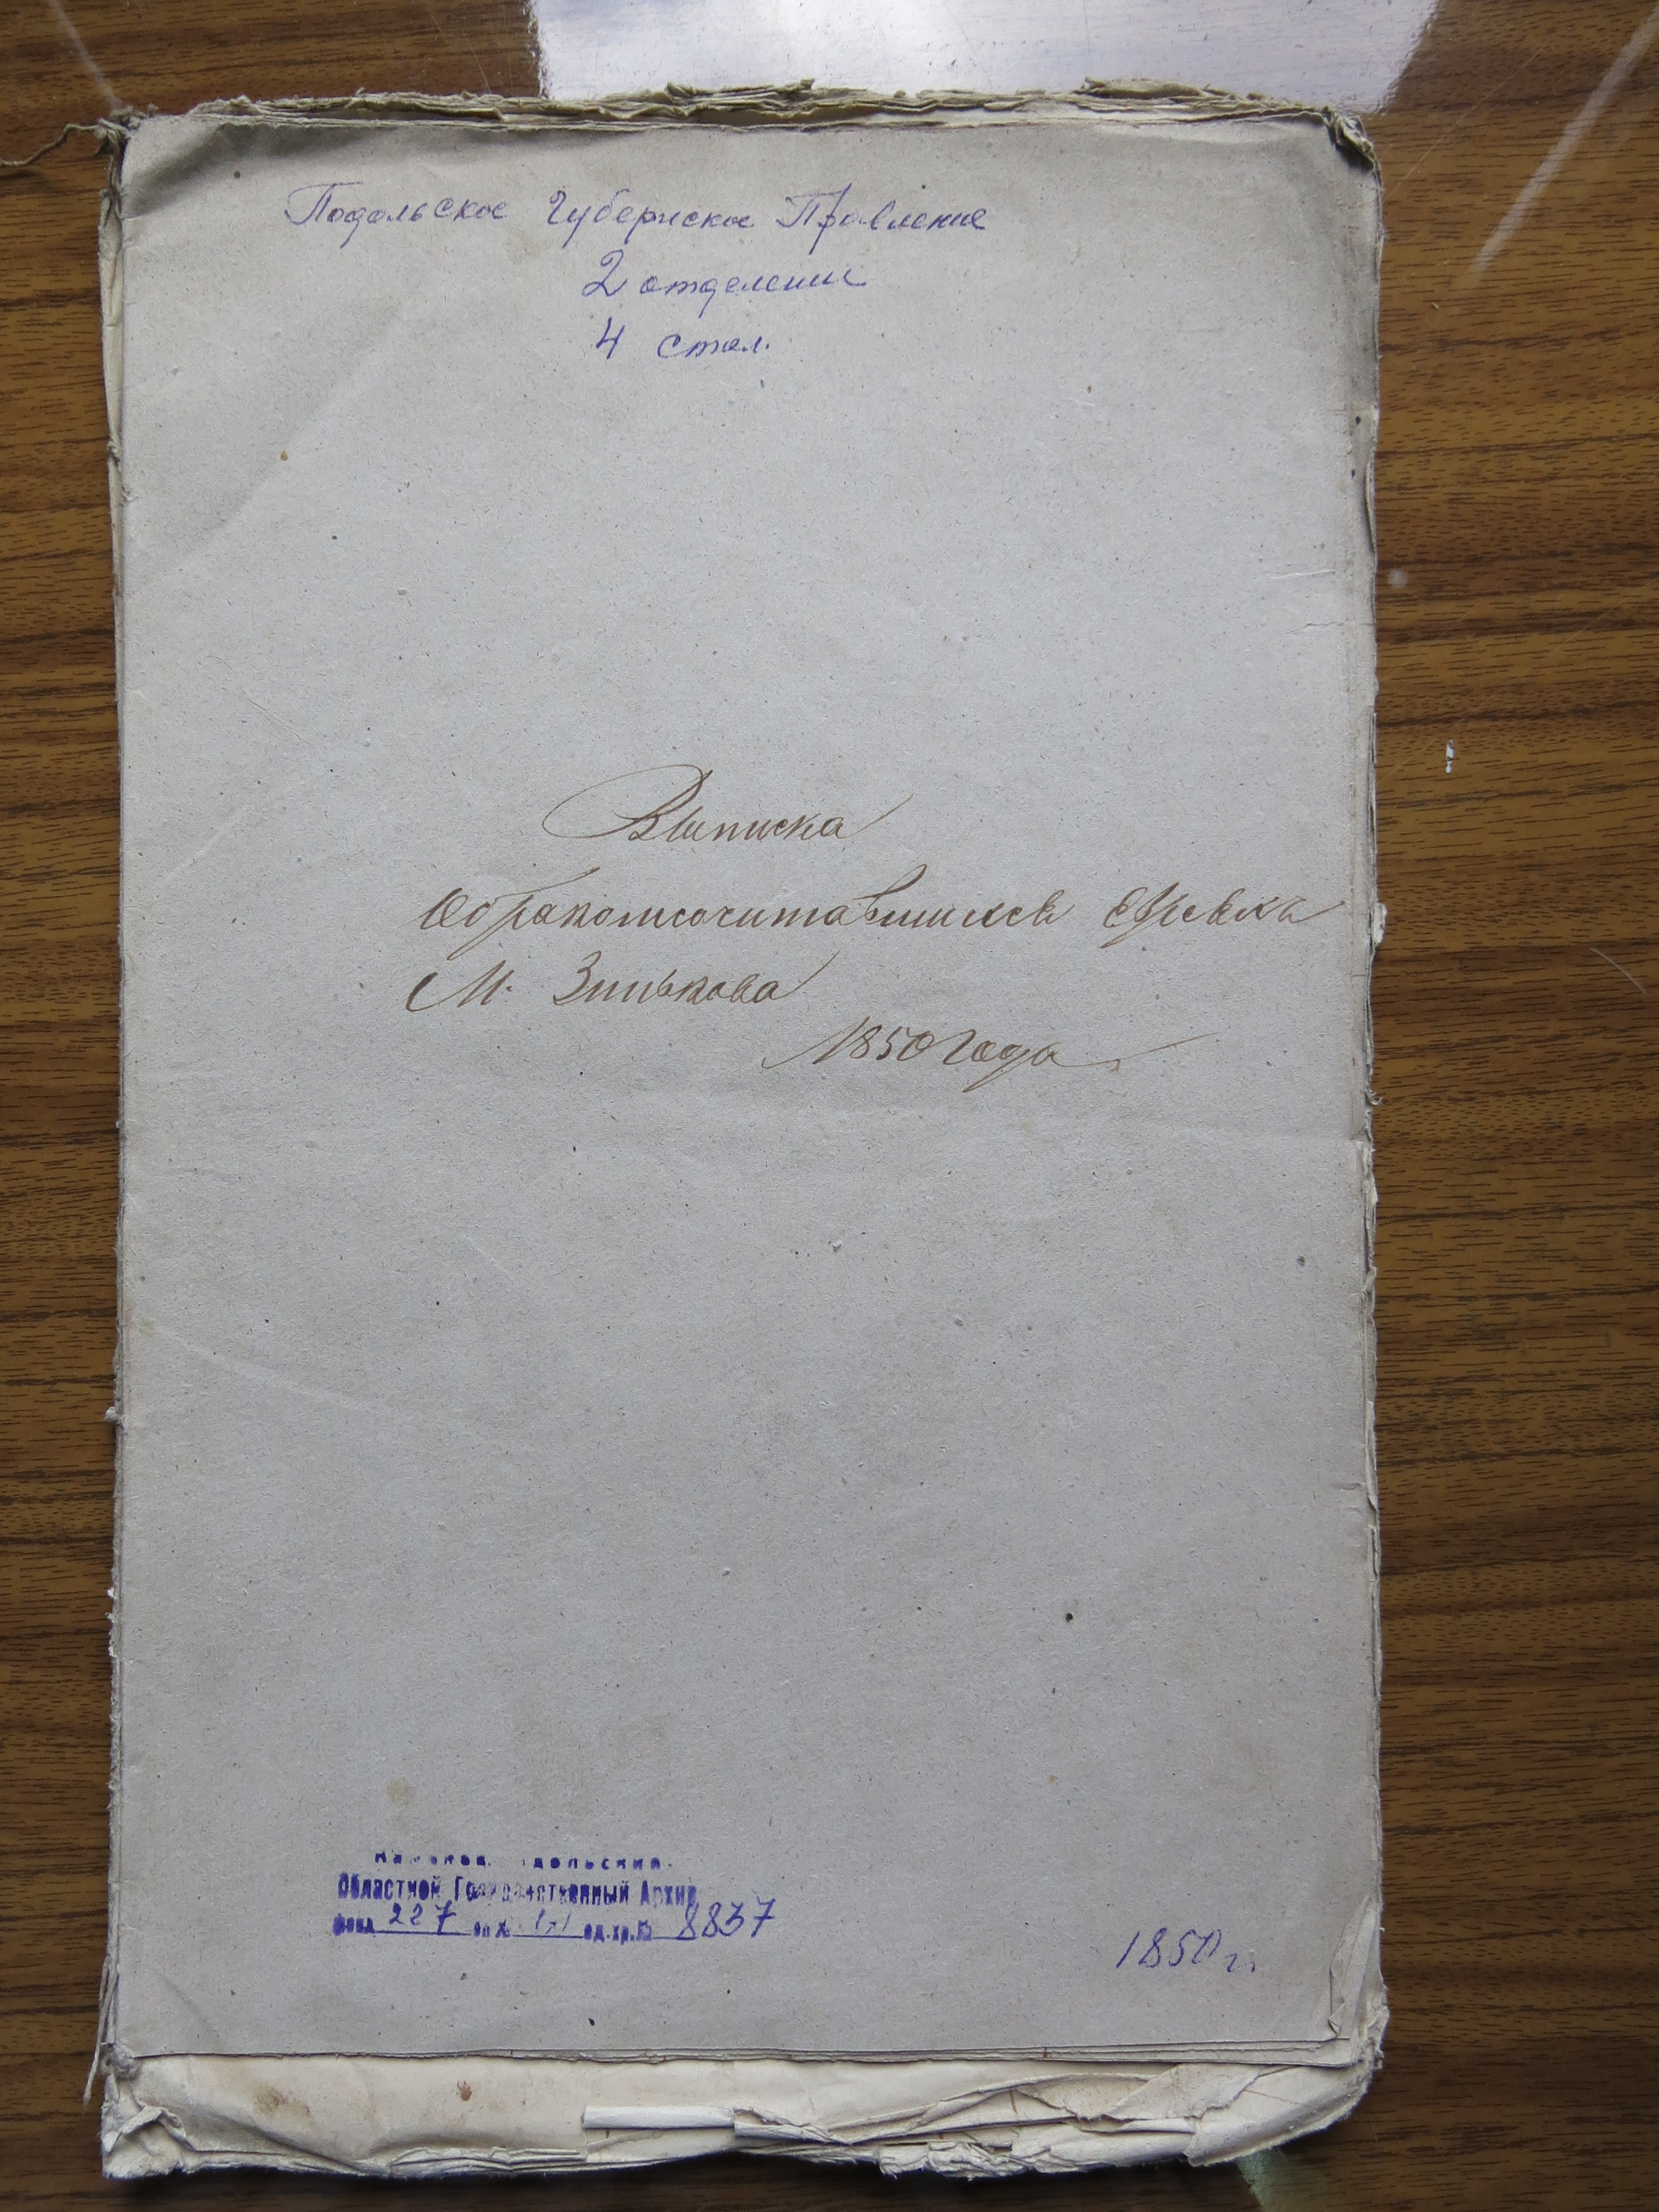 Подольское Губернское Правление
2 отделении
4 стол.
Выписка
Обракосочитавшихся Евреяхъ
М. Зинькова
1850 года
Областной Государственный Архив
фонд 227 оп № од.хр.№ 8837
1850 г.